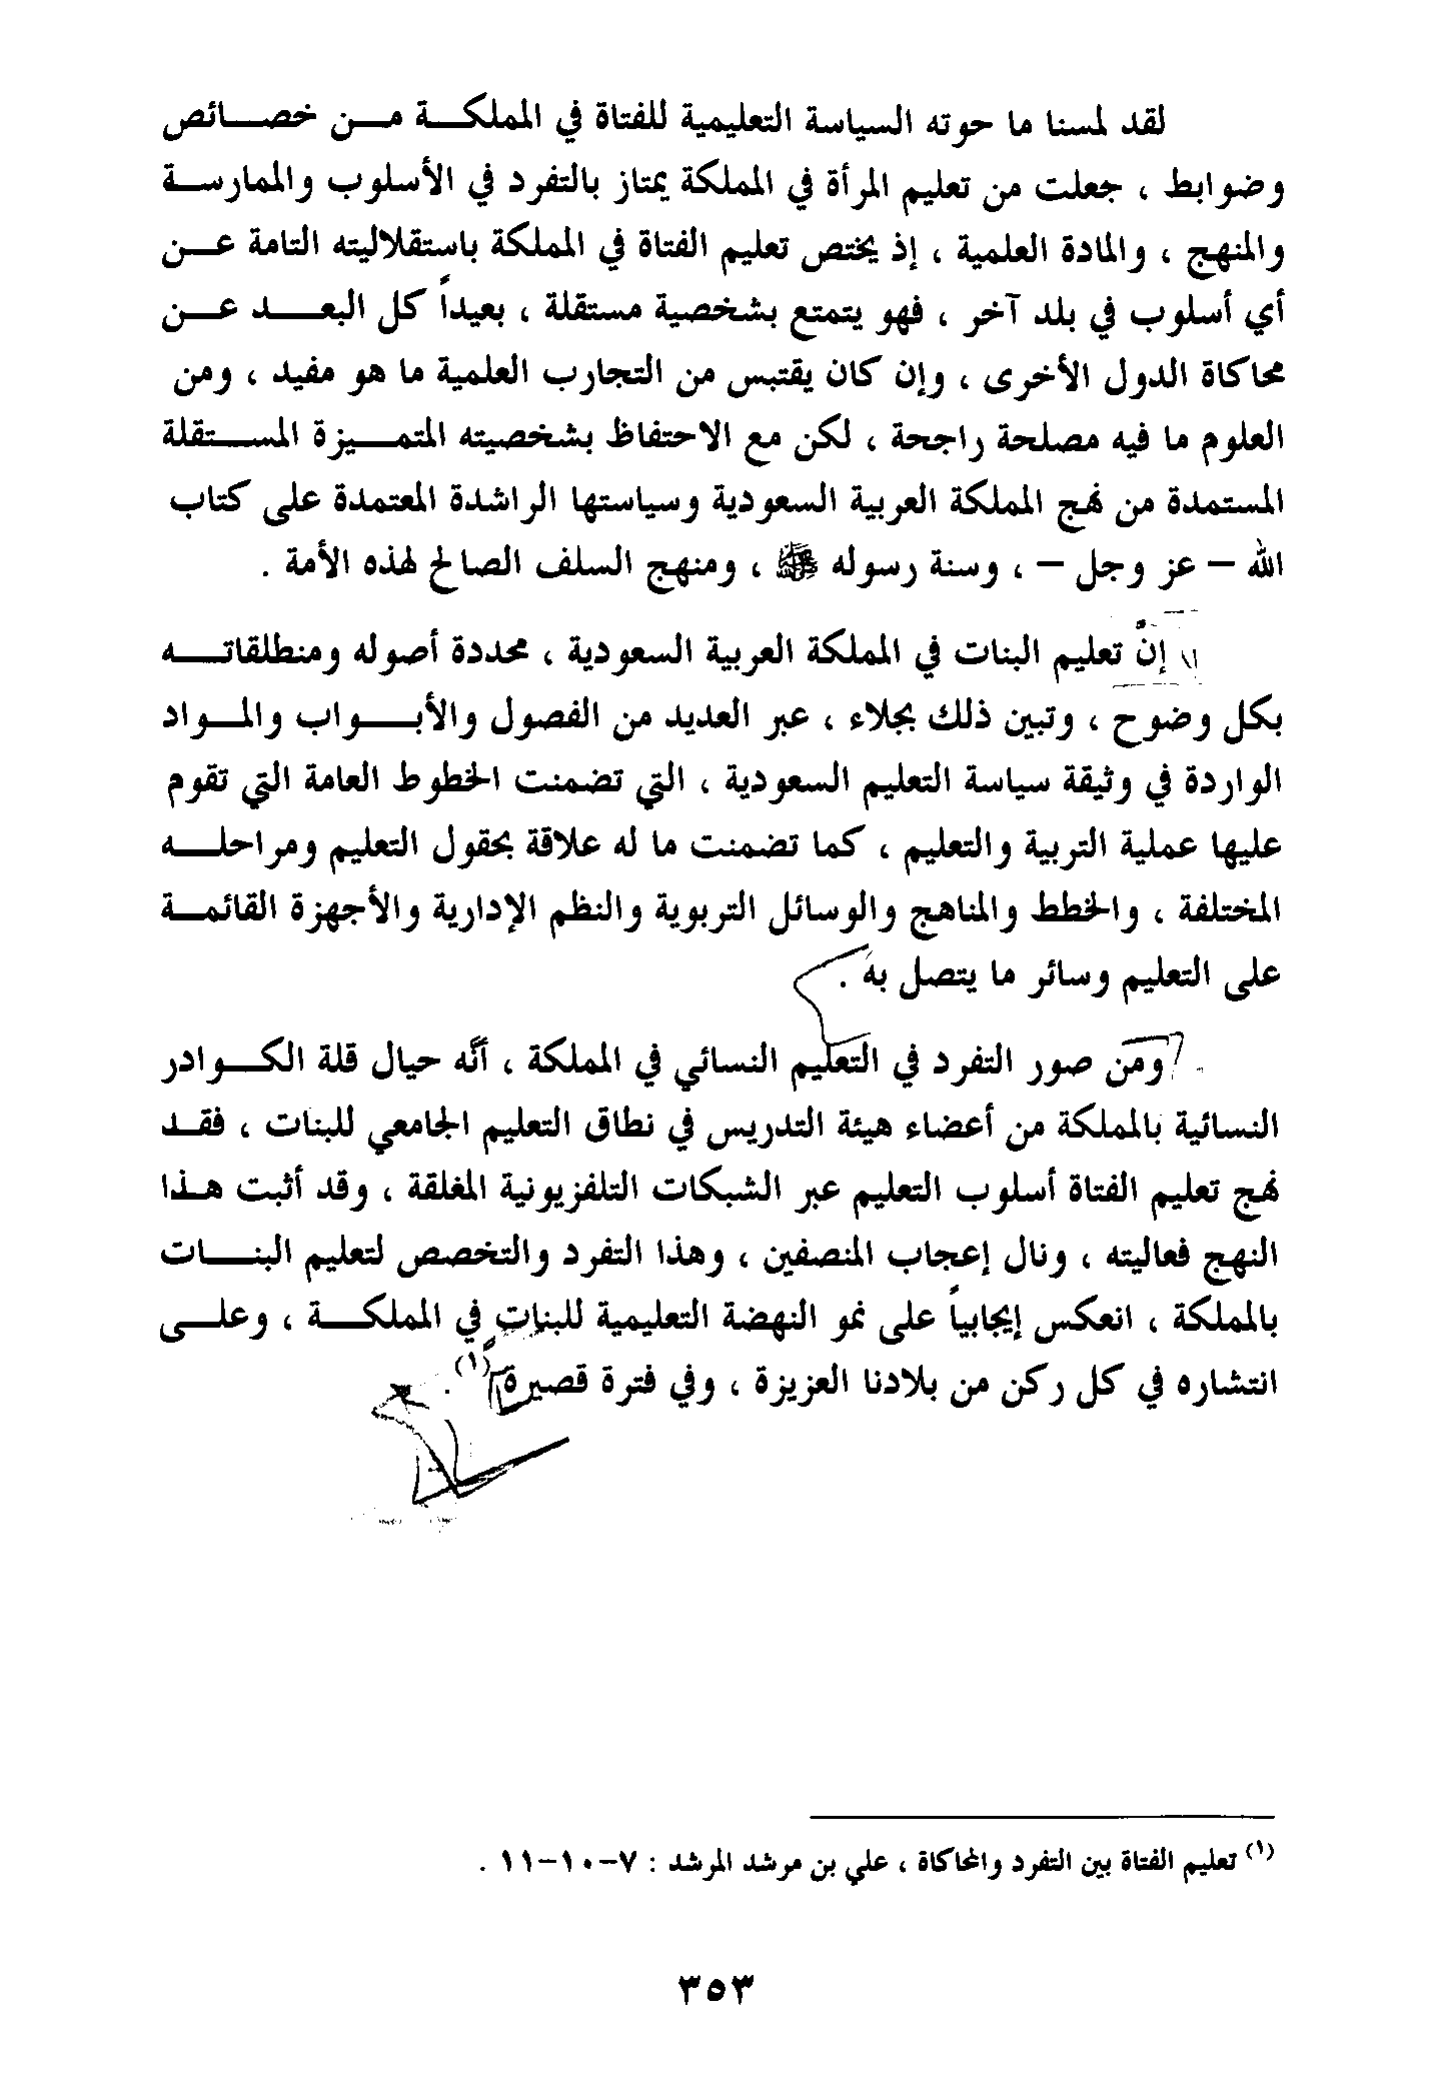 لقد لمسنا ما حوته السياسة التعليمية للفتاة في المملكة من خصائص
وضوابط ، جعلت من تعليم المرأة في المملكة يمتاز بالتفرد في الأسلوب والممارسة
والمنهج ، والمادة العلمية ، إذ يختص تعليم الفتاة في المملكة باستقلاليته التامة عن
أي أسلوب في بلد آخر ، فهو يتمتع بشخصية مستقلة ، بعيداً كل البعد عن
محاكاة الدول الأخرى ، وإن كان يقتبس من التجارب العلمية ما هو مفيد ، ومن
العلوم ما فيه مصلحة راجحة ، لكن مع الاحتفاظ بشخصيته المتميزة المستقلة
المستمدة من نهج المملكة العربية السعودية وسياستها الراشدة المعتمدة على كتاب
الله – عز وجل – ، وسنة رسوله ﷺ ، ومنهج السلف الصالح لهذه الأمة .
إنَّ تعليم البنات في المملكة العربية السعودية ، محددة أصوله ومنطلقاته
بكل وضوح ، وتبين ذلك بجلاء ، عبر العديد من الفصول والأبواب والمواد
الواردة في وثيقة سياسة التعليم السعودية ، التي تضمنت الخطوط العامة التي تقوم
عليها عملية التربية والتعليم ، كما تضمنت ما له علاقة بحقول التعليم ومراحله
المختلفة ، والخطط والمناهج والوسائل التربوية والنظم الإدارية والأجهزة القائمة
على التعليم وسائر ما يتصل به .
ومن صور التفرد في التعليم النسائي في المملكة ، أنَّه حيال قلة الكوادر
النسائية بالمملكة من أعضاء هيئة التدريس في نطاق التعليم الجامعي للبنات ، فقد
نهج تعليم الفتاة أسلوب التعليم عبر الشبكات التلفزيونية المغلقة ، وقد أثبت هذا
النهج فعاليته ، ونال إعجاب المنصفين ، وهذا التفرد والتخصص لتعليم البنات
بالمملكة ، انعكس إيجابياً على نمو النهضة التعليمية للبنات في المملكة ، وعلى
انتشاره في كل ركن من بلادنا العزيزة ، وفي فترة قصيرة (١) .
(١) تعليم الفتاة بين التفرد والمحاكاة ، علي بن مرشد المرشد : ٧-١٠-١١ .
٣٥٣